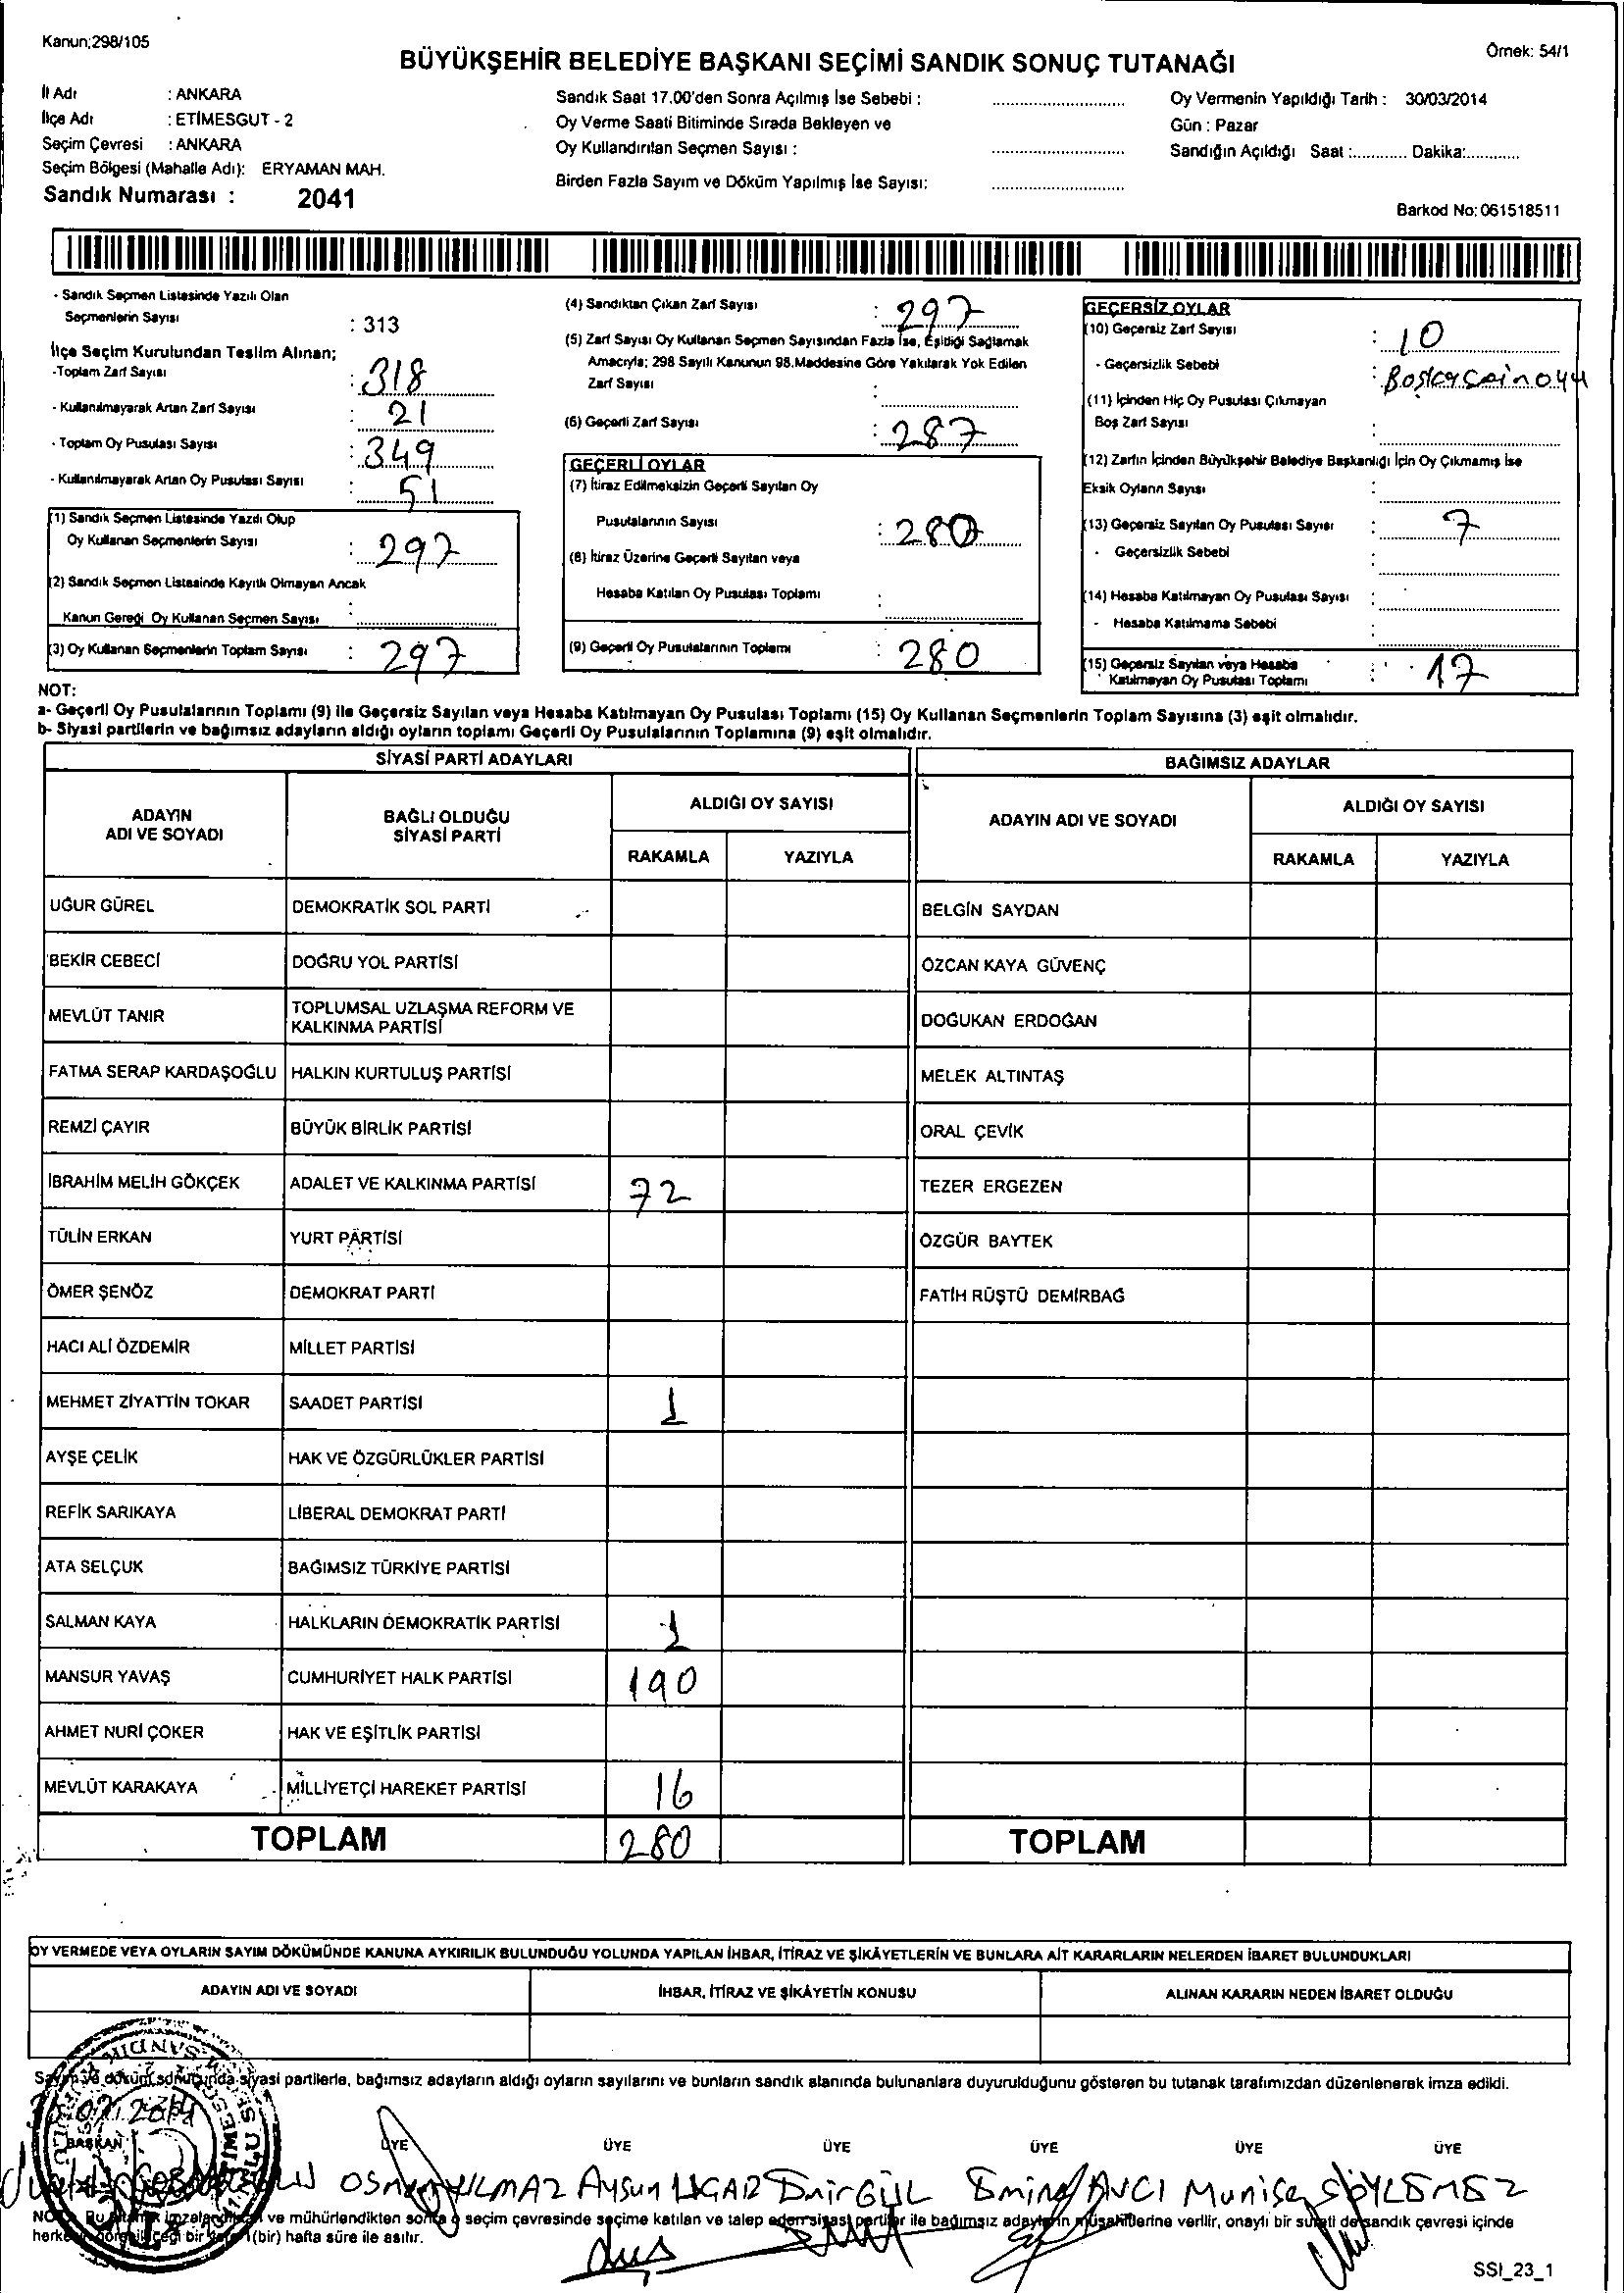 Kanun;298/105
Örnek: 54/1
BÜYÜKŞEHİR BELEDİYE BAŞKANI SEÇİMİ SANDIK SONUÇ TUTANAĞI
İl Adı : ANKARA
İlçe Adı : ETİMESGUT - 2
Seçim Çevresi : ANKARA
Seçim Bölgesi (Mahalle Adı): ERYAMAN MAH.
Sandık Numarası : 2041
Sandık Saat 17.00'den Sonra Açılmış İse Sebebi :
Oy Verme Saati Bitiminde Sırada Bekleyen ve
Oy Kullandırılan Seçmen Sayısı :
Birden Fazla Sayım ve Döküm Yapılmış İse Sayısı:
Oy Vermenin Yapıldığı Tarih : 30/03/2014
Gün : Pazar
Sandığın Açıldığı Saat :............ Dakika:............
Barkod No: 061518511
- Sandık Seçmen Listesinde Yazılı Olan
Seçmenlerin Sayısı : 313
İlçe Seçim Kurulundan Teslim Alınan;
-Toplam Zarf Sayısı : 318
- Kullanılmayarak Artan Zarf Sayısı : 21
- Toplam Oy Pusulası Sayısı : 349
- Kullanılmayarak Artan Oy Pusulası Sayısı : 51
(1) Sandık Seçmen Listesinde Yazılı Olup
Oy Kullanan Seçmenlerin Sayısı : 297
(2) Sandık Seçmen Listesinde Kayıtlı Olmayan Ancak
Kanun Gereği Oy Kullanan Seçmen Sayısı :
(3) Oy Kullanan Seçmenlerin Toplam Sayısı : 297
(4) Sandıktan Çıkan Zarf Sayısı : 297
(5) Zarf Sayısı Oy Kullanan Seçmen Sayısından Fazla İse, Eşitliği Sağlamak
Amacıyla; 298 Sayılı Kanunun 98.Maddesine Göre Yakılarak Yok Edilen
Zarf Sayısı :
(6) Geçerli Zarf Sayısı : 287
GEÇERLİ OYLAR
(7) İtiraz Edilmeksizin Geçerli Sayılan Oy
Pusulalarının Sayısı : 280
(8) İtiraz Üzerine Geçerli Sayılan veya
Hesaba Katılan Oy Pusulası Toplamı :
(9) Geçerli Oy Pusulalarının Toplamı : 280
GEÇERSİZ OYLAR
(10) Geçersiz Zarf Sayısı : 10
- Geçersizlik Sebebi :
(11) İçinden Hiç Oy Pusulası Çıkmayan
Boş Zarf Sayısı :
(12) Zarfın İçinden Büyükşehir Belediye Başkanlığı İçin Oy Çıkmamış İse
Eksik Oyların Sayısı :
(13) Geçersiz Sayılan Oy Pusulası Sayısı : 7
- Geçersizlik Sebebi :
(14) Hesaba Katılmayan Oy Pusulası Sayısı :
- Hesaba Katılmama Sebebi :
(15) Geçersiz Sayılan veya Hesaba
Katılmayan Oy Pusulası Toplamı : 17
NOT:
a- Geçerli Oy Pusulalarının Toplamı (9) ile Geçersiz Sayılan veya Hesaba Katılmayan Oy Pusulası Toplamı (15) Oy Kullanan Seçmenlerin Toplam Sayısına (3) eşit olmalıdır.
b- Siyasi partilerin ve bağımsız adayların aldığı oyların toplamı Geçerli Oy Pusulalarının Toplamına (9) eşit olmalıdır.
SİYASİ PARTİ ADAYLARI
ADAYIN ADI VE SOYADI
BAĞLI OLDUĞU SİYASİ PARTİ
ALDIĞI OY SAYISI
RAKAMLA YAZIYLA
UĞUR GÜREL DEMOKRATİK SOL PARTİ
BEKİR CEBECİ DOĞRU YOL PARTİSİ
MEVLÜT TANIR TOPLUMSAL UZLAŞMA REFORM VE
KALKINMA PARTİSİ
FATMA SERAP KARDAŞOĞLU HALKIN KURTULUŞ PARTİSİ
REMZİ ÇAYIR BÜYÜK BİRLİK PARTİSİ
İBRAHİM MELİH GÖKÇEK ADALET VE KALKINMA PARTİSİ 72
TÜLİN ERKAN YURT PARTİSİ
ÖMER ŞENÖZ DEMOKRAT PARTİ
HACI ALİ ÖZDEMİR MİLLET PARTİSİ
MEHMET ZİYATTİN TOKAR SAADET PARTİSİ 1
AYŞE ÇELİK HAK VE ÖZGÜRLÜKLER PARTİSİ
REFİK SARIKAYA LİBERAL DEMOKRAT PARTİ
ATA SELÇUK BAĞIMSIZ TÜRKİYE PARTİSİ
SALMAN KAYA HALKLARIN DEMOKRATİK PARTİSİ 1
MANSUR YAVAŞ CUMHURİYET HALK PARTİSİ 190
AHMET NURİ ÇOKER HAK VE EŞİTLİK PARTİSİ
MEVLÜT KARAKAYA MİLLİYETÇİ HAREKET PARTİSİ 16
TOPLAM 280
BAĞIMSIZ ADAYLAR
ADAYIN ADI VE SOYADI
ALDIĞI OY SAYISI
RAKAMLA YAZIYLA
BELGİN SAYDAN
ÖZCAN KAYA GÜVENÇ
DOĞUKAN ERDOĞAN
MELEK ALTINTAŞ
ORAL ÇEVİK
TEZER ERGEZEN
ÖZGÜR BAYTEK
FATİH RÜŞTÜ DEMİRBAĞ
TOPLAM
OY VERMEDE VEYA OYLARIN SAYIM DÖKÜMÜNDE KANUNA AYKIRILIK BULUNDUĞU YOLUNDA YAPILAN İHBAR, İTİRAZ VE ŞİKÂYETLERİN VE BUNLARA AİT KARARLARIN NELERDEN İBARET BULUNDUKLARI
ADAYIN ADI VE SOYADI
İHBAR, İTİRAZ VE ŞİKÂYETİN KONUSU
ALINAN KARARIN NEDEN İBARET OLDUĞU
Sayım ve döküm sonucunda siyasi partilerle, bağımsız adayların aldığı oyların sayılarını ve bunların sandık alanında bulunanlara duyurulduğunu gösteren bu tutanak tarafımızdan düzenlenerek imza edildi.
BAŞKAN ÜYE ÜYE ÜYE ÜYE ÜYE ÜYE
OSMAN YILMAZ Aysun UÇAR GÜL Emine AVCI Munise SÖYLEMEZ
NOT: Bu tutanak imzalandıktan ve mühürlendikten sonra o seçim çevresinde seçime katılan ve talep eden siyasi partiler ile bağımsız adayların müşahitlerine verilir, onaylı bir sureti de sandık çevresi içinde
herkesin görebileceği bir yere 1(bir) hafta süre ile asılır.
SSI_23_1